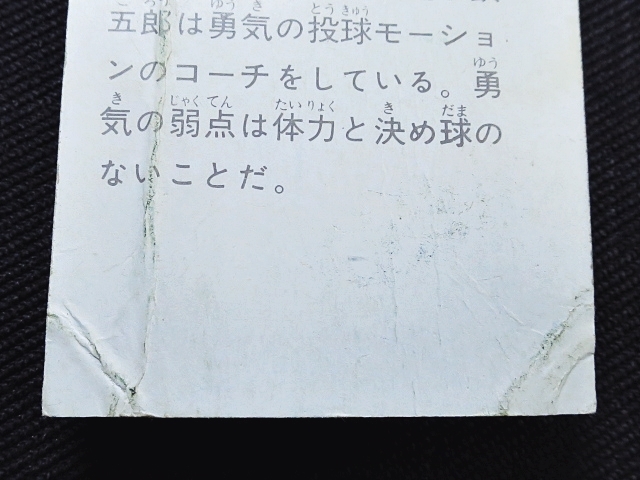 五郎は勇気の投球モーショ
ンのコーチをしている。勇
気の弱点は体力と決め球の
ないことだ。